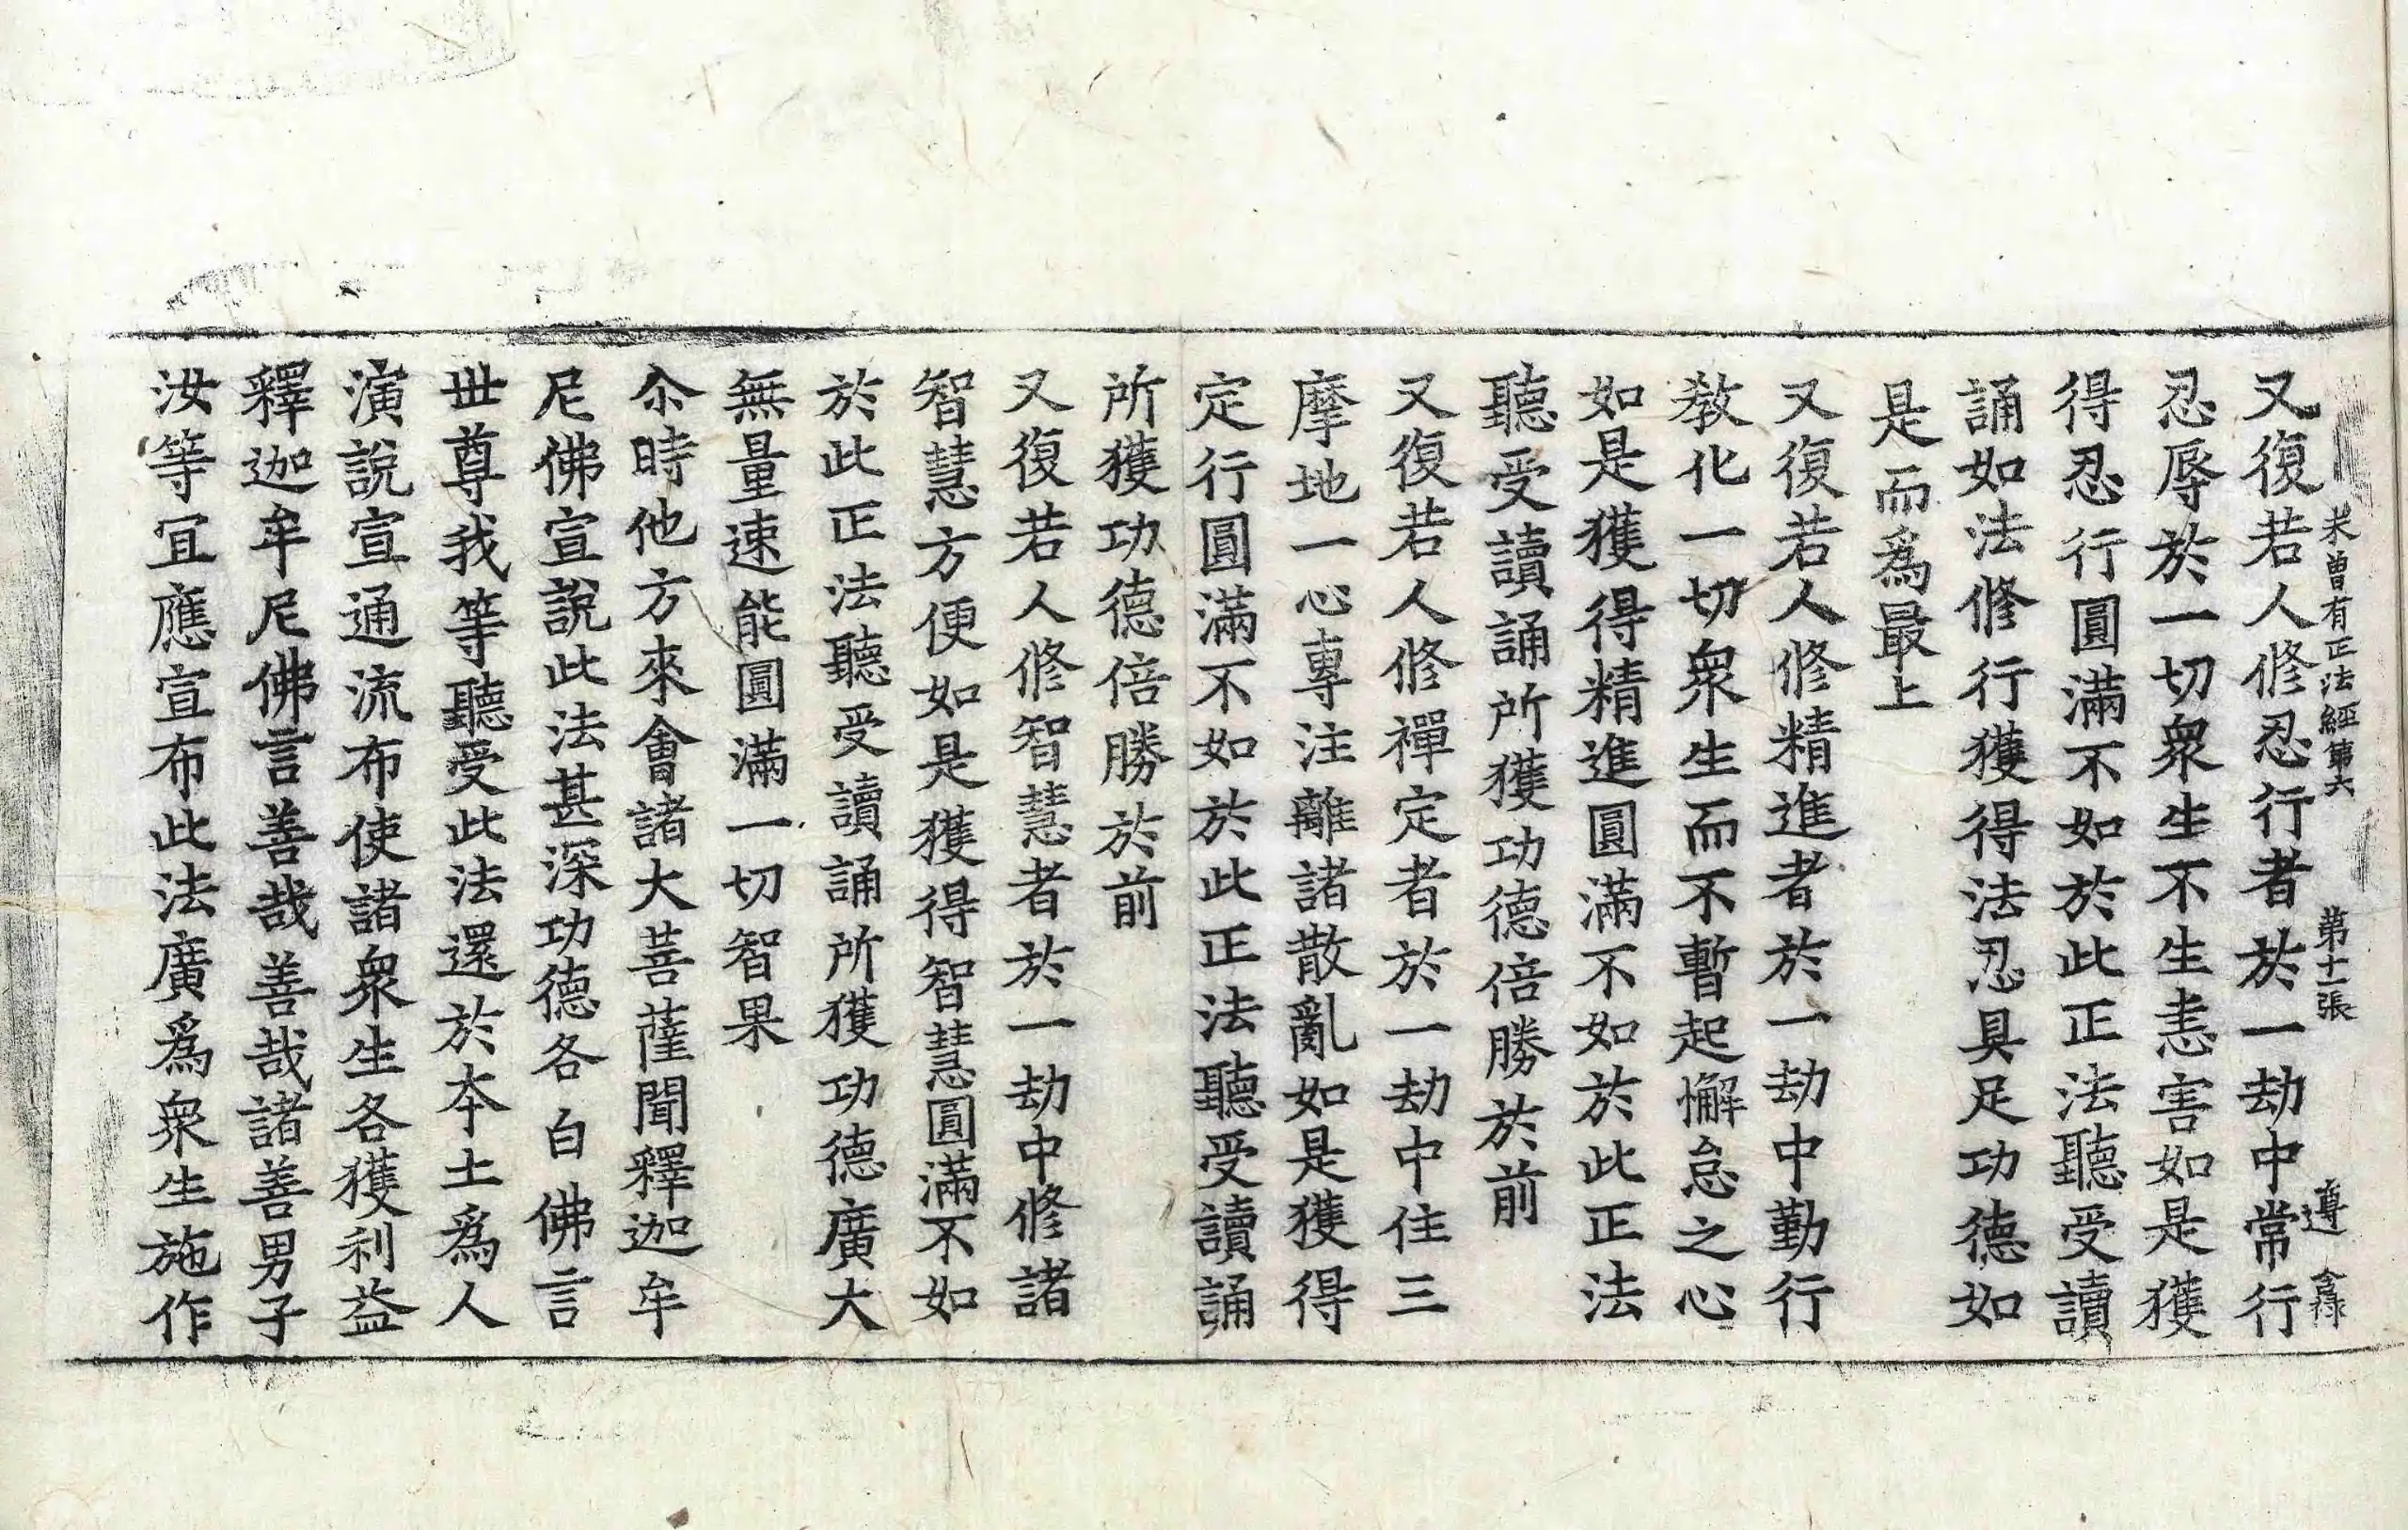 又復若人修忍行者於一劫中常行
未曾有正法經第六 第十一張 遵
忍辱於一切衆生不生恚害如是獲
得忍行圓滿不如於此正法聽受讀
誦如法修行獲得法忍具足功德如
是而爲最上
又復若人修精進者於一劫中勤行
教化一切衆生而不暫起懈怠之心
如是獲得精進圓滿不如於此正法
聽受讀誦所獲功德倍勝於前
又復若人修禪定者於一劫中住三
摩地一心專注離諸散亂如是獲得
定行圓滿不如於此正法聽受讀誦
所獲功德倍勝於前
又復若人修智慧者於一劫中修諸
智慧方便如是獲得智慧圓滿不如
於此正法聽受讀誦所獲功德廣大
無量速能圓滿一切智果
尒時他方來會諸大菩薩聞釋迦牟
尼佛宣說此法甚深功德各白佛言
世尊我等聽受此法還於本土爲人
演說宣通流布使諸衆生各獲利益
釋迦牟尼佛言善哉善哉諸善男子
汝等冝應宣布此法廣爲衆生施作